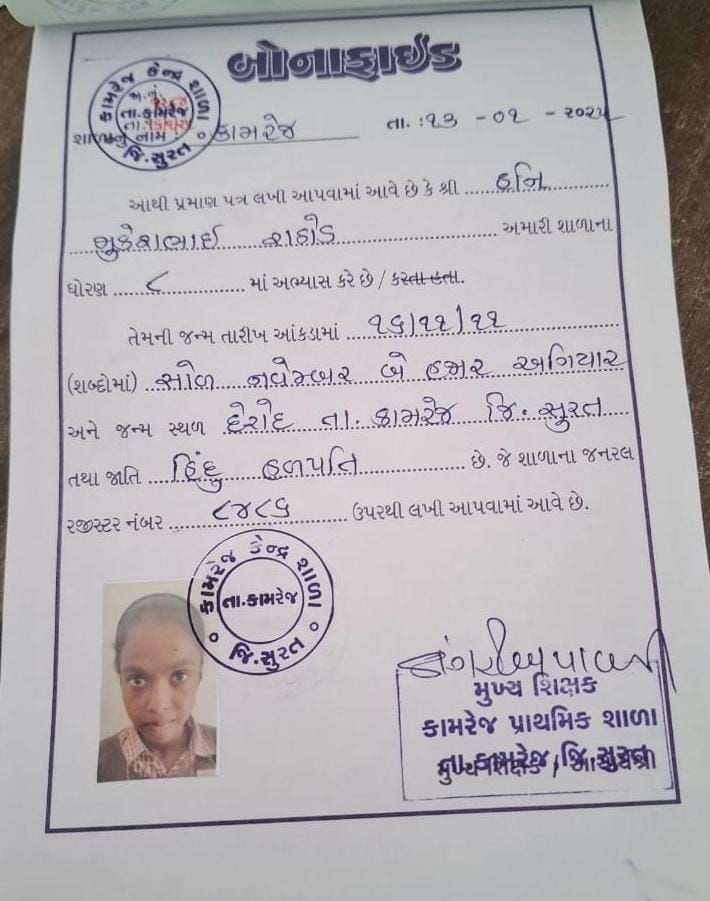 બોનાફાઈડ
કામરેજ કેન્દ્ર શાળા
તા.કામરેજ
જિ.સુરત
શાળાનું નામ કામરેજ તા. : ૧૩ - ૦૧ - ૨૦૨૫
આથી પ્રમાણ પત્ર લખી આપવામાં આવે છે કે શ્રી હનિ
મુકેશભાઈ રાઠોડ અમારી શાળાના
ધોરણ ૮ માં અભ્યાસ કરે છે / કરતા હતા.
તેમની જન્મ તારીખ આંકડામાં ૧૬/૧૧/૧૧
(શબ્દોમાં) સોળ નવેમ્બર બે હજાર અગિયાર
અને જન્મ સ્થળ દેરોદ તા. કામરેજ જિ. સુરત
તથા જાતિ હિંદુ હળપતિ છે. જે શાળાના જનરલ
રજીસ્ટર નંબર ૮૪૮૬ ઉપરથી લખી આપવામાં આવે છે.
કામરેજ કેન્દ્ર શાળા
તા.કામરેજ
જિ.સુરત
મુખ્ય શિક્ષક
કામરેજ પ્રાથમિક શાળા
તા.કામરેજ, જિ.સુરત
મુખ્ય શિક્ષક / આચાર્યશ્રી